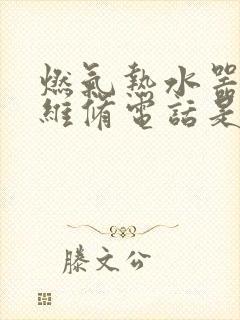 燃氣熱水器
維備電話是
滕文公